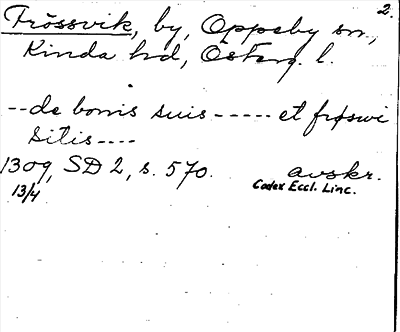 2.
Frössvik, by, Oppeby sn.,
Kinda hd, Österg. l.
--de bonis suis ----- et frøswi
sitis ----
1309, SD 2, s. 570. avskr.
13/4 Codex Eccl. Linc.